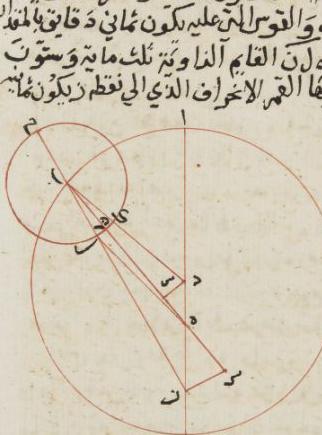 ه والقوس التي عليه يكون ثماني دقايق بالمقدار
لان القايم الزاوية ثلث ماية وستون
ها القمر الانحراف الذي الى نقطه ز يكون ثمانيه
ا
م
ب
ح
ه
د
س
ه
س
ن